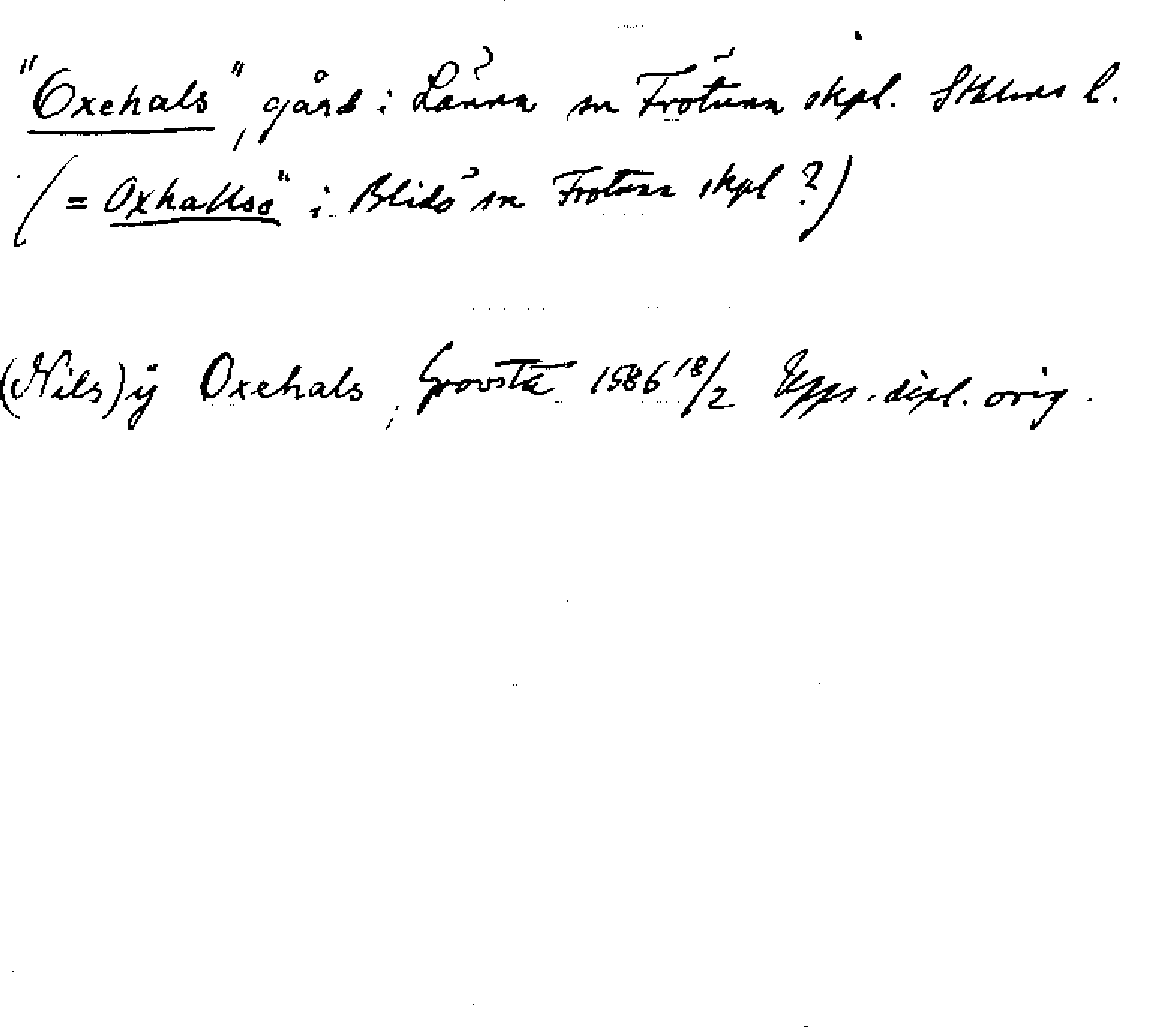 "Oxehals", gård i Länna sn Frötuna skpl. Sthlms l.
(= Oxhalsö i Blidö sn Frötuna skpl ?)
(Nils) ÿ Oxehals, Grovsta 1586 18/2 Upps. dipl. orig.